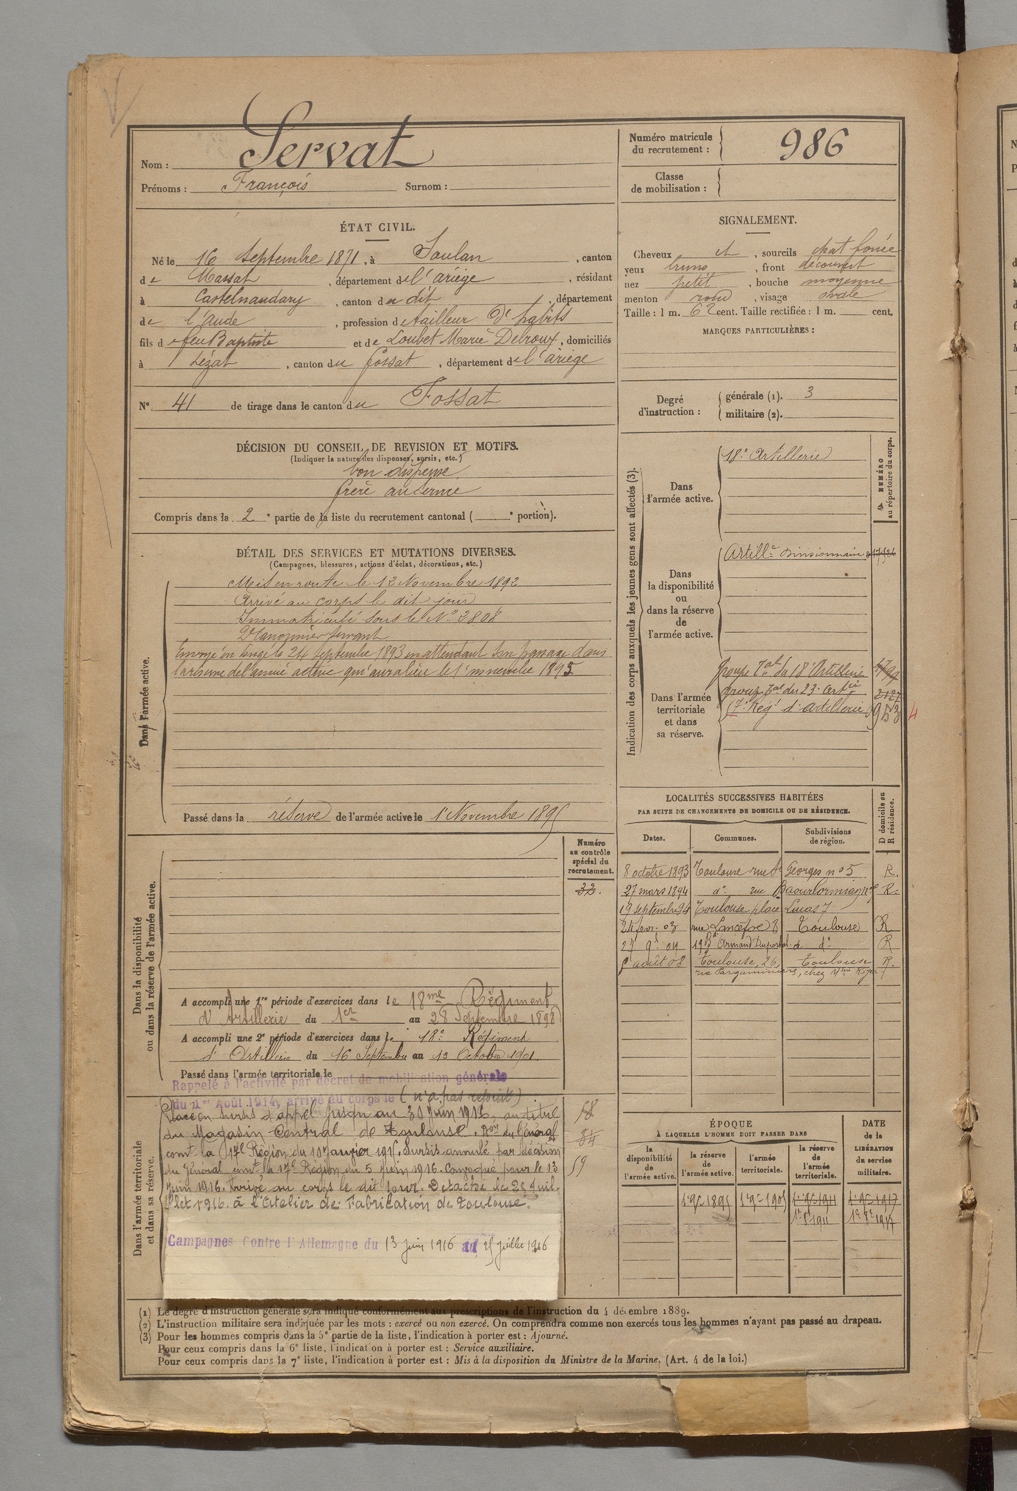 Nom : Servat
Prénoms : François Surnom :
Numéro matricule
du recrutement : 986
Classe
de mobilisation :
ÉTAT CIVIL.
Né le 16 Septembre 1871, à Soulan, canton
de Massat, département de l'ariège, résidant
à Castelnaudary, canton du dit, département
de l'Aude, profession de tailleur d'habits
fils de feu Baptiste et de Loubet Marie Delroux, domiciliés
à Lézat, canton du fossat, département de l'ariège
N° 41 de tirage dans le canton du Fossat
SIGNALEMENT.
Cheveux et, sourcils chat foncé
yeux bruns, front découvert
nez petit, bouche moyenne
menton rond, visage ovale
Taille : 1 m. 62 cent. Taille rectifiée : 1 m. cent.
MARQUES PARTICULIÈRES :
Degré
d'instruction :
générale (1). 3
militaire (2).
DÉCISION DU CONSEIL DE REVISION ET MOTIFS.
(Indiquer la nature des dispenses, sursis, etc.)
bon dispensé
frère au
Compris dans la 2e partie de la liste du recrutement cantonal ( e portion).
DÉTAIL DES SERVICES ET MUTATIONS DIVERSES.
(Campagnes, blessures, actions d'éclat, décorations, etc.)
Dans l'armée active.
Mis en route le 12 Novembre 1892
Arrivé au corps le dit jour
Immatriculé sous le N° 3808
2e Canonnier servant
Envoyé en congé le 24 septembre 1893 en attendant son passage dans
la réserve de l'armée active qui aura lieu le 1er novembre 1895
Passé dans la réserve de l'armée active le 1er Novembre 1895
Indication des corps auxquels les jeunes gens sont affectés (3).
NUMÉRO
au répertoire du corps.
Dans
l'armée active.
18e Artillerie
Dans
la disponibilité
ou
dans la réserve
de
l'armée active.
Artille Divisionnaire
Dans l'armée
territoriale
et dans
sa réserve.
groupe Tal du 18e Artillerie
groupe Tal du 23e Artie
57e Régt d'artillerie
LOCALITÉS SUCCESSIVES HABITÉES
PAR SUITE DE CHANGEMENTS DE DOMICILE OU DE RÉSIDENCE.
Dates. Communes. Subdivisions de région. D domicile ou R résidence.
8 octobre 1893 Toulouse rue St Georges n° 5 R.
27 mars 1894 do rue Baour Lormian R.
19 septembre 94 Toulouse place Lucas 7
24 fév. 03 rue Lancefoc 8 Toulouse R
27 9b 04 Bd Armand Duportal do R
août 08 Toulouse, 26, Toulouse R.
rue Pargaminières, chez Mme
Numéro
au contrôle
spécial du
recrutement.
33.
Dans la disponibilité
ou dans la réserve de l'armée active.
A accompli une 1re période d'exercices dans le 18me Régiment
d'Artillerie du 1er au 28 Septembre 1898
A accompli une 2e période d'exercices dans le 18e Régiment
d'Artillerie du 16 Septembre au 13 Octobre 1901
Passé dans l'armée territoriale le
Dans l'armée territoriale
et dans sa réserve.
Rappelé à l'activité par décret de mobilisation générale
du 1er Août 1914, arrivé au corps le (n'a pas rejoint)
Placé en sursis d'appel jusqu'au 30 Juin 1916, au titre
du Magasin Central de Toulouse. du Général
comt la 17e Région du 10 Janvier 1916. Sursis annulé par décision
du Général comt la 17e Région du 5 Juin 1916. Convoqué pour le 13
Juin 1916. Arrivé au corps le dit jour. Détaché le 25 Juil-
let 1916 à l'Atelier de Fabrication de Toulouse.
Campagnes Contre l'Allemagne du 13 Juin 1916 au 25 Juillet 1916
58
84
59
ÉPOQUE
À LAQUELLE L'HOMME DOIT PASSER DANS
DATE
de la
LIBÉRATION
du service
militaire.
la
disponibilité
de
l'armée active.
la réserve
de
l'armée active.
l'armée
territoriale.
la réserve
de
l'armée
territoriale.
1er 9bre 1895 1er 9bre 1905 1er 9bre 1911 1er 9bre 1917
(1) Le degré d'instruction générale sera indiqué conformément aux prescriptions de l'instruction du 4 décembre 1889.
(2) L'instruction militaire sera indiquée par les mots : exercé ou non exercé. On comprendra comme non exercés tous les hommes n'ayant pas passé au drapeau.
(3) Pour les hommes compris dans la 5e partie de la liste, l'indication à porter est : Ajourné.
Pour ceux compris dans la 6e liste, l'indication à porter est : Service auxiliaire.
Pour ceux compris dans la 7e liste, l'indication à porter est : Mis à la disposition du Ministre de la Marine. (Art. 4 de la loi.)